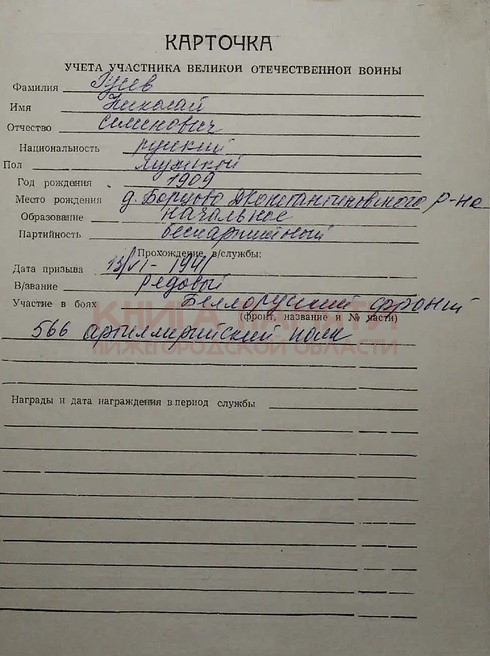 КАРТОЧКА
УЧЕТА УЧАСТНИКА ВЕЛИКОЙ ОТЕЧЕСТВЕННОЙ ВОЙНЫ
Фамилия Гусев
Имя Николай
Отчество Семенович
Национальность руский
Пол мужской
Год рождения 1909
Место рождения д. Борцово Дконстантиновского р-на
Образование начальное
Партийность беспартийный
Прохождение в/службы:
Дата призыва 13/VI - 1941
В/звание рядовый
Участие в боях Беллоруский фронт
(фронт, название и № части)
566 артиллерийский полк
КНИГА ПАМЯТИ
НИЖЕГОРОДСКОЙ ОБЛАСТИ
Награды и дата награждения в период службы